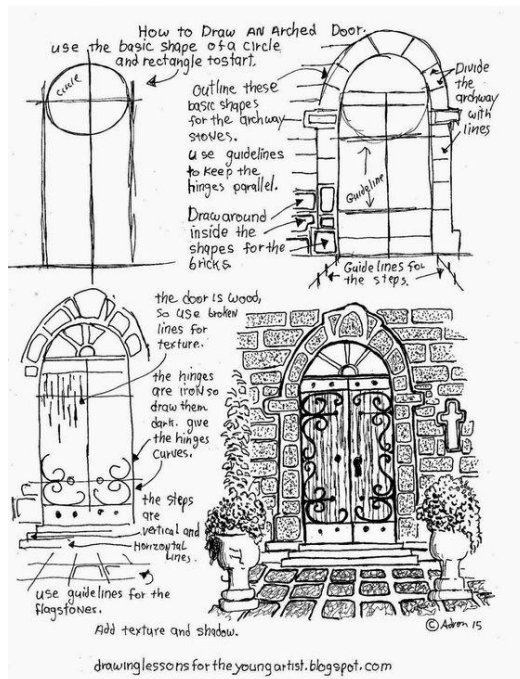 How to Draw AN Arched Door.
use the basic shape of a circle
and rectangle to start.
circle
Outline these
basic shapes
for the archway
stones.
use guidelines
to keep the
hinges parallel.
Draw around
inside the
shapes for the
bricks.
Divide
the
archway
with
lines
Guideline
Guide lines for
the steps.
the door is wood,
so use broken
lines for
texture.
the hinges
are iron so
draw them
dark. give
the hinges
curves.
the steps
are
vertical and
Horizontal
Lines.
use guidelines for the
flagstones.
Add texture and shadow.
© Adron 15
drawinglessonsfortheyoungartist.blogspot.com